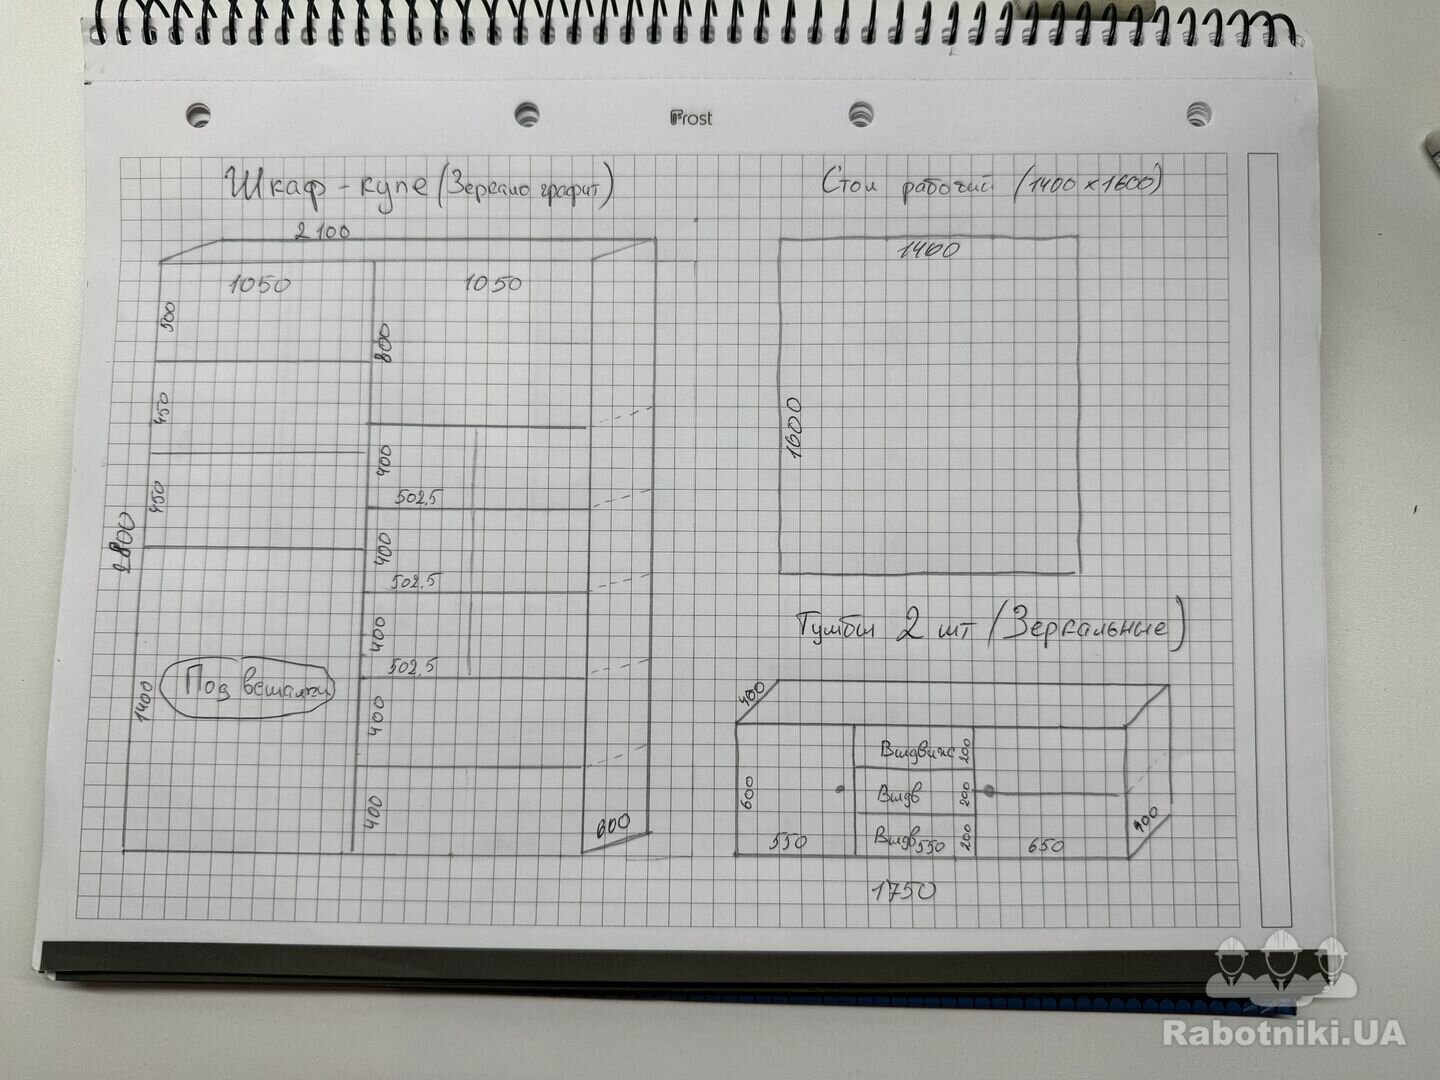 Frost
Шкаф-купе (Зеркало графит)
2100
1050
1050
500
800
450
400
502.5
450
400
502.5
2800
400
502.5
Под вешалки
1400
400
400
600
Стол рабочий (1400 х 1600)
1400
1600
Тумбы 2 шт (Зеркальные)
400
Выдвиж
200
600
Выдв
200
Выдв
550
200
550
650
400
1750
Rabotniki.UA